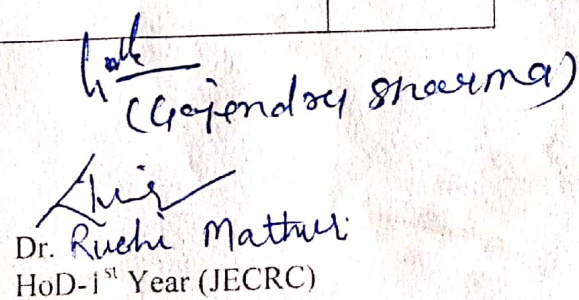 (Gajendra Sharma)
Dr. Ruchi Mathur
HoD-1st Year (JECRC)